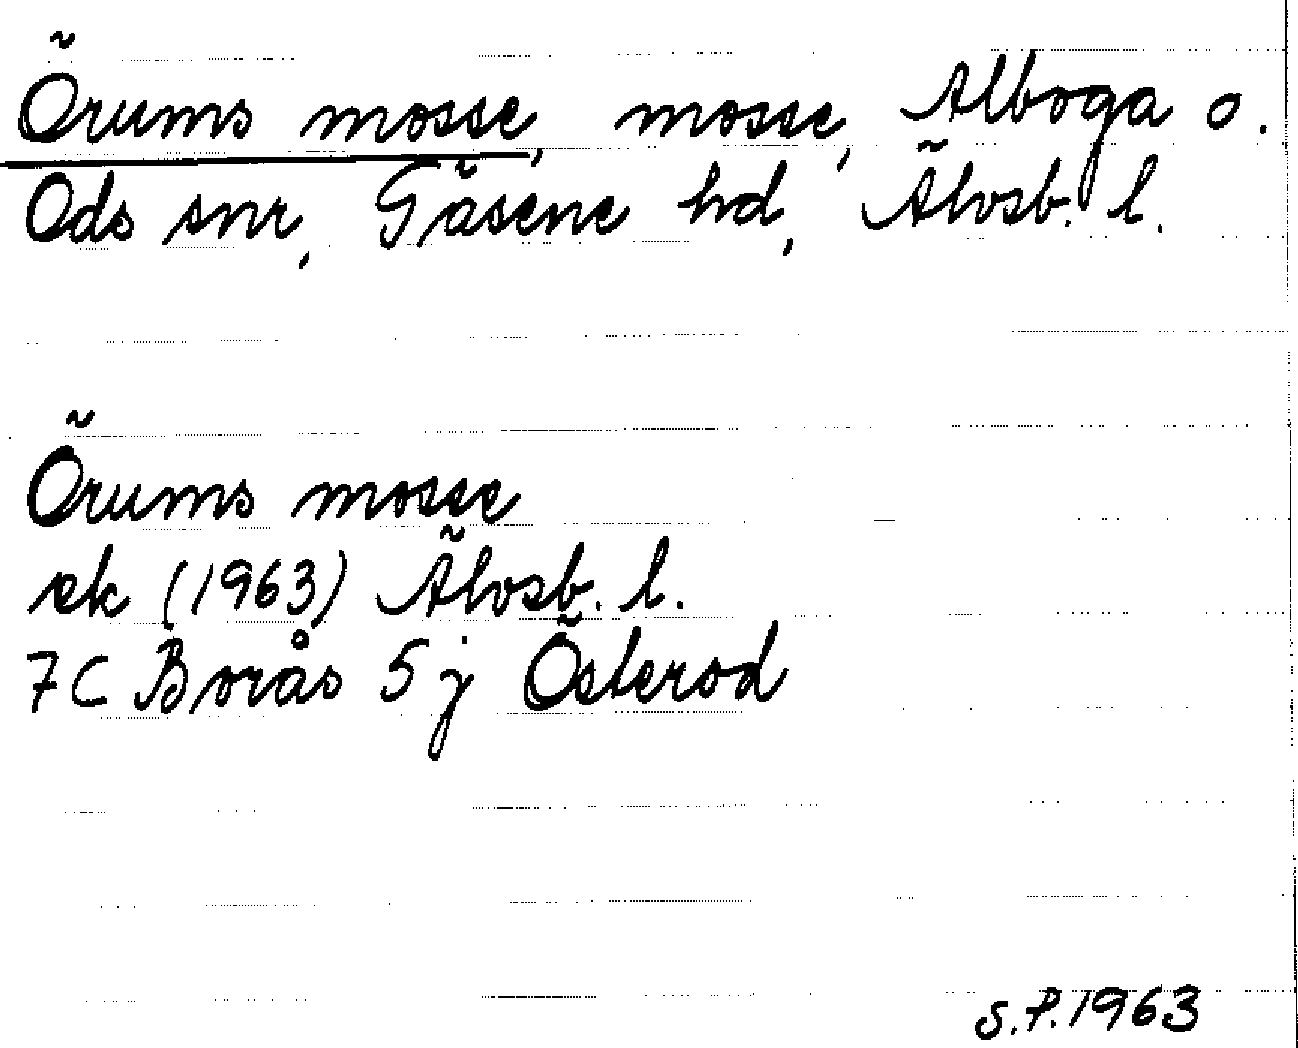 Örums mosse, mosse, Alboga o.
Ods snr, Gäsene hd, Älvsb. l.
Örums mosse
ek (1963) Älvsb. l.
7C Borås 5j Österod
S.P.1963